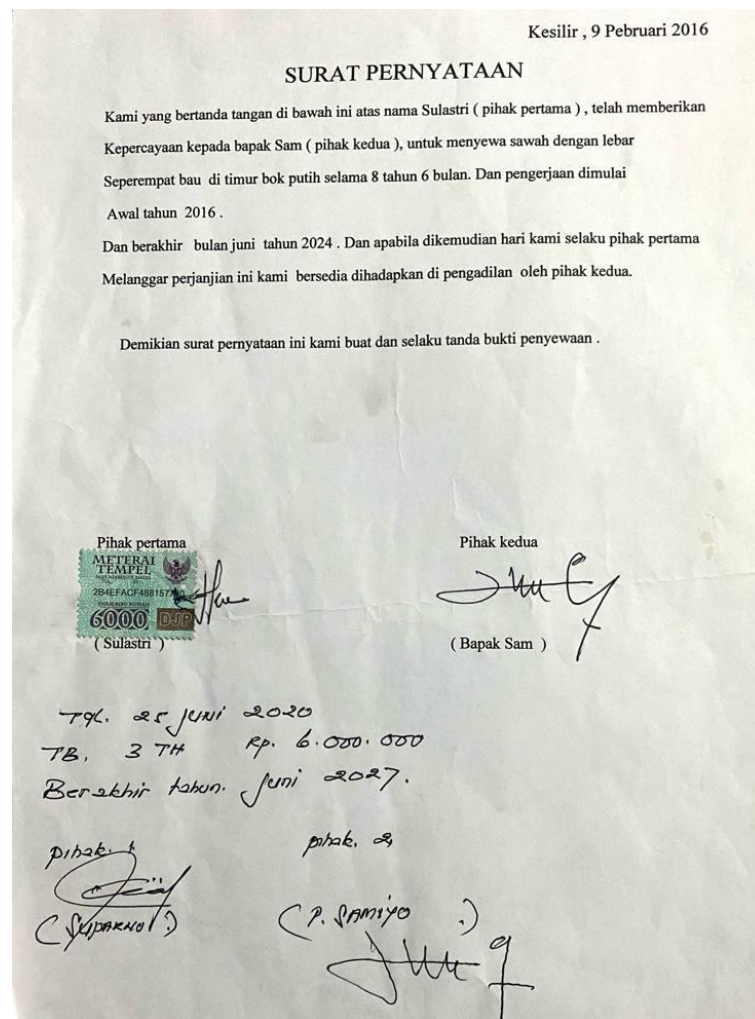 Kesilir , 9 Pebruari 2016
SURAT PERNYATAAN
Kami yang bertanda tangan di bawah ini atas nama Sulastri ( pihak pertama ) , telah memberikan
Kepercayaan kepada bapak Sam ( pihak kedua ), untuk menyewa sawah dengan lebar
Seperempat bau di timur bok putih selama 8 tahun 6 bulan. Dan pengerjaan dimulai
Awal tahun 2016 .
Dan berakhir bulan juni tahun 2024 . Dan apabila dikemudian hari kami selaku pihak pertama
Melanggar perjanjian ini kami bersedia dihadapkan di pengadilan oleh pihak kedua.
Demikian surat pernyataan ini kami buat dan selaku tanda bukti penyewaan .
Pihak pertama
Pihak kedua
METERAI
TEMPEL
6000 DJP
( Sulastri )
( Bapak Sam )
Tgl. 25 Juni 2020
TB. 3 TH Rp. 6.000.000
Berakhir tahun. Juni 2027.
pihak. 1
pihak. 2
( SUPARNO )
( P. SAMIYO )